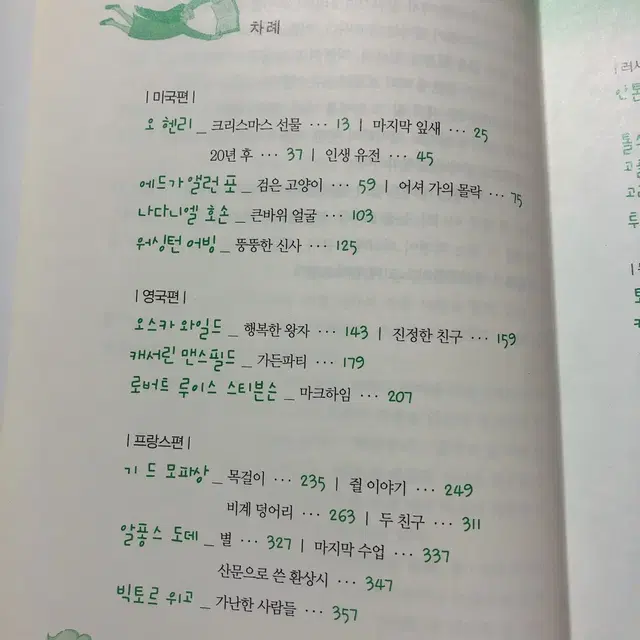 차례
| 미국편 |
오 헨리 _ 크리스마스 선물 ··· 13 | 마지막 잎새 ··· 25
20년 후 ··· 37 | 인생 유전 ··· 45
에드가 앨런 포 _ 검은 고양이 ··· 59 | 어셔 가의 몰락 ··· 75
나다니엘 호손 _ 큰바위 얼굴 ··· 103
워싱턴 어빙 _ 뚱뚱한 신사 ··· 125
| 영국편 |
오스카 와일드 _ 행복한 왕자 ··· 143 | 진정한 친구 ··· 159
캐서린 맨스필드 _ 가든파티 ··· 179
로버트 루이스 스티븐슨 _ 마크하임 ··· 207
| 프랑스편 |
기 드 모파상 _ 목걸이 ··· 235 | 쥘 이야기 ··· 249
비계 덩어리 ··· 263 | 두 친구 ··· 311
알퐁스 도데 _ 별 ··· 327 | 마지막 수업 ··· 337
산문으로 쓴 환상시 ··· 347
빅토르 위고 _ 가난한 사람들 ··· 357
| 러시
안톤
톨스
고
고
투